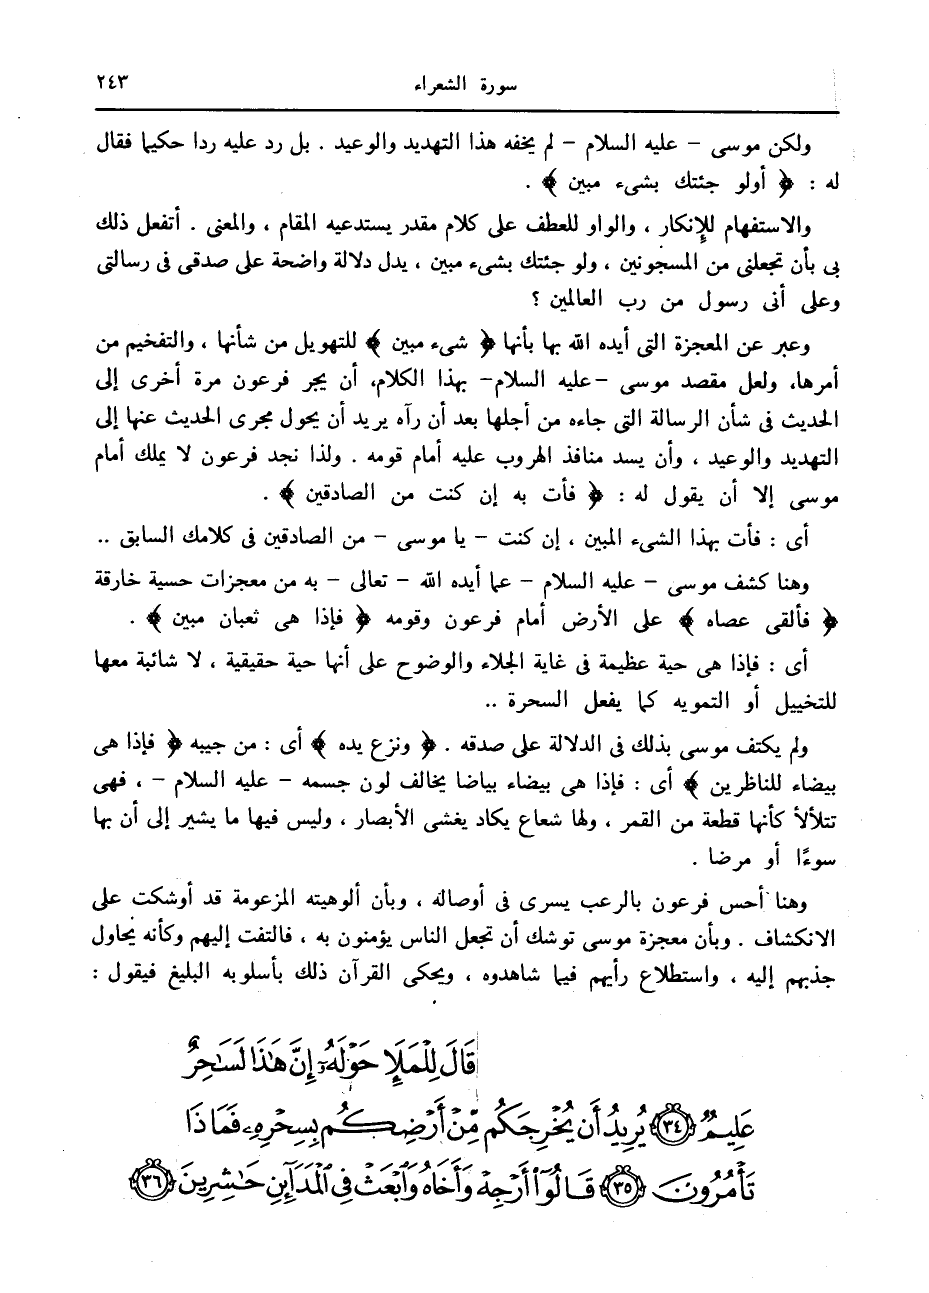 سورة الشعراء ٢٤٣
ولكن موسى - عليه السلام - لم يخفه هذا التهديد والوعيد . بل رد عليه ردا حكيما فقال
له : ﴿ أولو جئتك بشىء مبين ﴾ .
والاستفهام للإنكار ، والواو للعطف على كلام مقدر يستدعيه المقام ، والمعنى . أتفعل ذلك
بى بأن تجعلنى من المسجونين ، ولو جئتك بشىء مبين ، يدل دلالة واضحة على صدقى فى رسالتى
وعلى أنى رسول من رب العالمين ؟
وعبر عن المعجزة التى أيده الله بها بأنها ﴿ شىء مبين ﴾ للتهويل من شأنها ، والتفخيم من
أمرها، ولعل مقصد موسى -عليه السلام- بهذا الكلام، أن يجر فرعون مرة أخرى إلى
الحديث فى شأن الرسالة التى جاءه من أجلها بعد أن رآه يريد أن يحول مجرى الحديث عنها إلى
التهديد والوعيد ، وأن يسد منافذ الهروب عليه أمام قومه . ولذا نجد فرعون لا يملك أمام
موسى إلا أن يقول له : ﴿ فأت به إن كنت من الصادقين ﴾ .
أى : فأت بهذا الشىء المبين ، إن كنت - يا موسى - من الصادقين فى كلامك السابق ..
وهنا كشف موسى - عليه السلام - عما أيده الله - تعالى - به من معجزات حسية خارقة
﴿ فألقى عصاه ﴾ على الأرض أمام فرعون وقومه ﴿ فإذا هى ثعبان مبين ﴾ .
أى : فإذا هى حية عظيمة فى غاية الجلاء والوضوح على أنها حية حقيقية ، لا شائبة معها
للتخييل أو التمويه كما يفعل السحرة ..
ولم يكتف موسى بذلك فى الدلالة على صدقه . ﴿ ونزع يده ﴾ أى : من جيبه ﴿ فإذا هى
بيضاء للناظرين ﴾ أى : فإذا هى بيضاء بياضا يخالف لون جسمه - عليه السلام - ، فهى
تتلألأ كأنها قطعة من القمر ، ولها شعاع يكاد يغشى الأبصار ، وليس فيها ما يشير إلى أن بها
سوءًا أو مرضا .
وهنا أحس فرعون بالرعب يسرى فى أوصاله ، وبأن ألوهيته المزعومة قد أوشكت على
الانكشاف . وبأن معجزة موسى توشك أن تجعل الناس يؤمنون به ، فالتفت إليهم وكأنه يحاول
جذبهم إليه ، واستطلاع رأيهم فيما شاهدوه ، ويحكى القرآن ذلك بأسلوبه البليغ فيقول :
قَالَ لِلْمَلَإِ حَوْلَهُۥٓ إِنَّ هَٰذَا لَسَٰحِرٌ
عَلِيمٌ ٣٤ يُرِيدُ أَن يُخْرِجَكُم مِّنْ أَرْضِكُم بِسِحْرِهِۦ فَمَاذَا
تَأْمُرُونَ ٣٥ قَالُوٓا۟ أَرْجِهْ وَأَخَاهُ وَٱبْعَثْ فِى ٱلْمَدَآئِنِ حَٰشِرِينَ ٣٦